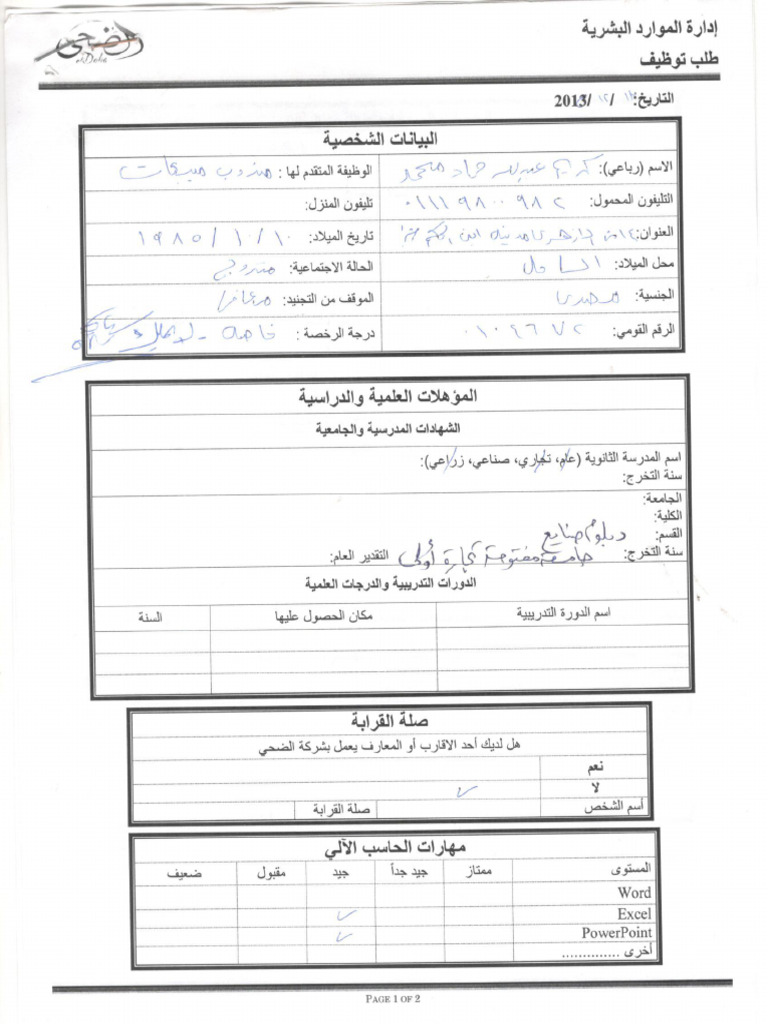 إدارة الموارد البشرية
الضحى
al Doha
طلب توظيف
التاريخ: / ١٢ / 2013
البيانات الشخصية
الاسم (رباعي): كريم حماد محمد الوظيفة المتقدم لها : مندوب مبيعات
التليفون المحمول: ٠١١١٩٨٠٠٩٨٢ تليفون المنزل:
العنوان: تاريخ الميلاد: ١٠ / ١٠ / ١٩٨٥
محل الميلاد: الساحل الحالة الاجتماعية: متزوج
الجنسية: مصرى الموقف من التجنيد: معافا
الرقم القومي: درجة الرخصة : خاصه - لا يملك سيارة
المؤهلات العلمية والدراسية
الشهادات المدرسية والجامعية
اسم المدرسة الثانوية (عام، تجاري، صناعي، زراعي):
سنة التخرج:
الجامعة:
الكلية:
القسم: دبلوم صنايع
سنة التخرج: جامعة مفتوحة تجارة أولى التقدير العام:
الدورات التدريبية والدرجات العلمية
اسم الدورة التدريبية مكان الحصول عليها السنة
صلة القرابة
هل لديك أحد الاقارب أو المعارف يعمل بشركة الضحي
نعم
لا ✓
أسم الشخص صلة القرابة
مهارات الحاسب الآلي
المستوى ممتاز جيد جداً جيد مقبول ضعيف
Word
Excel ✓
PowerPoint ✓
أخرى ..............
PAGE 1 OF 2